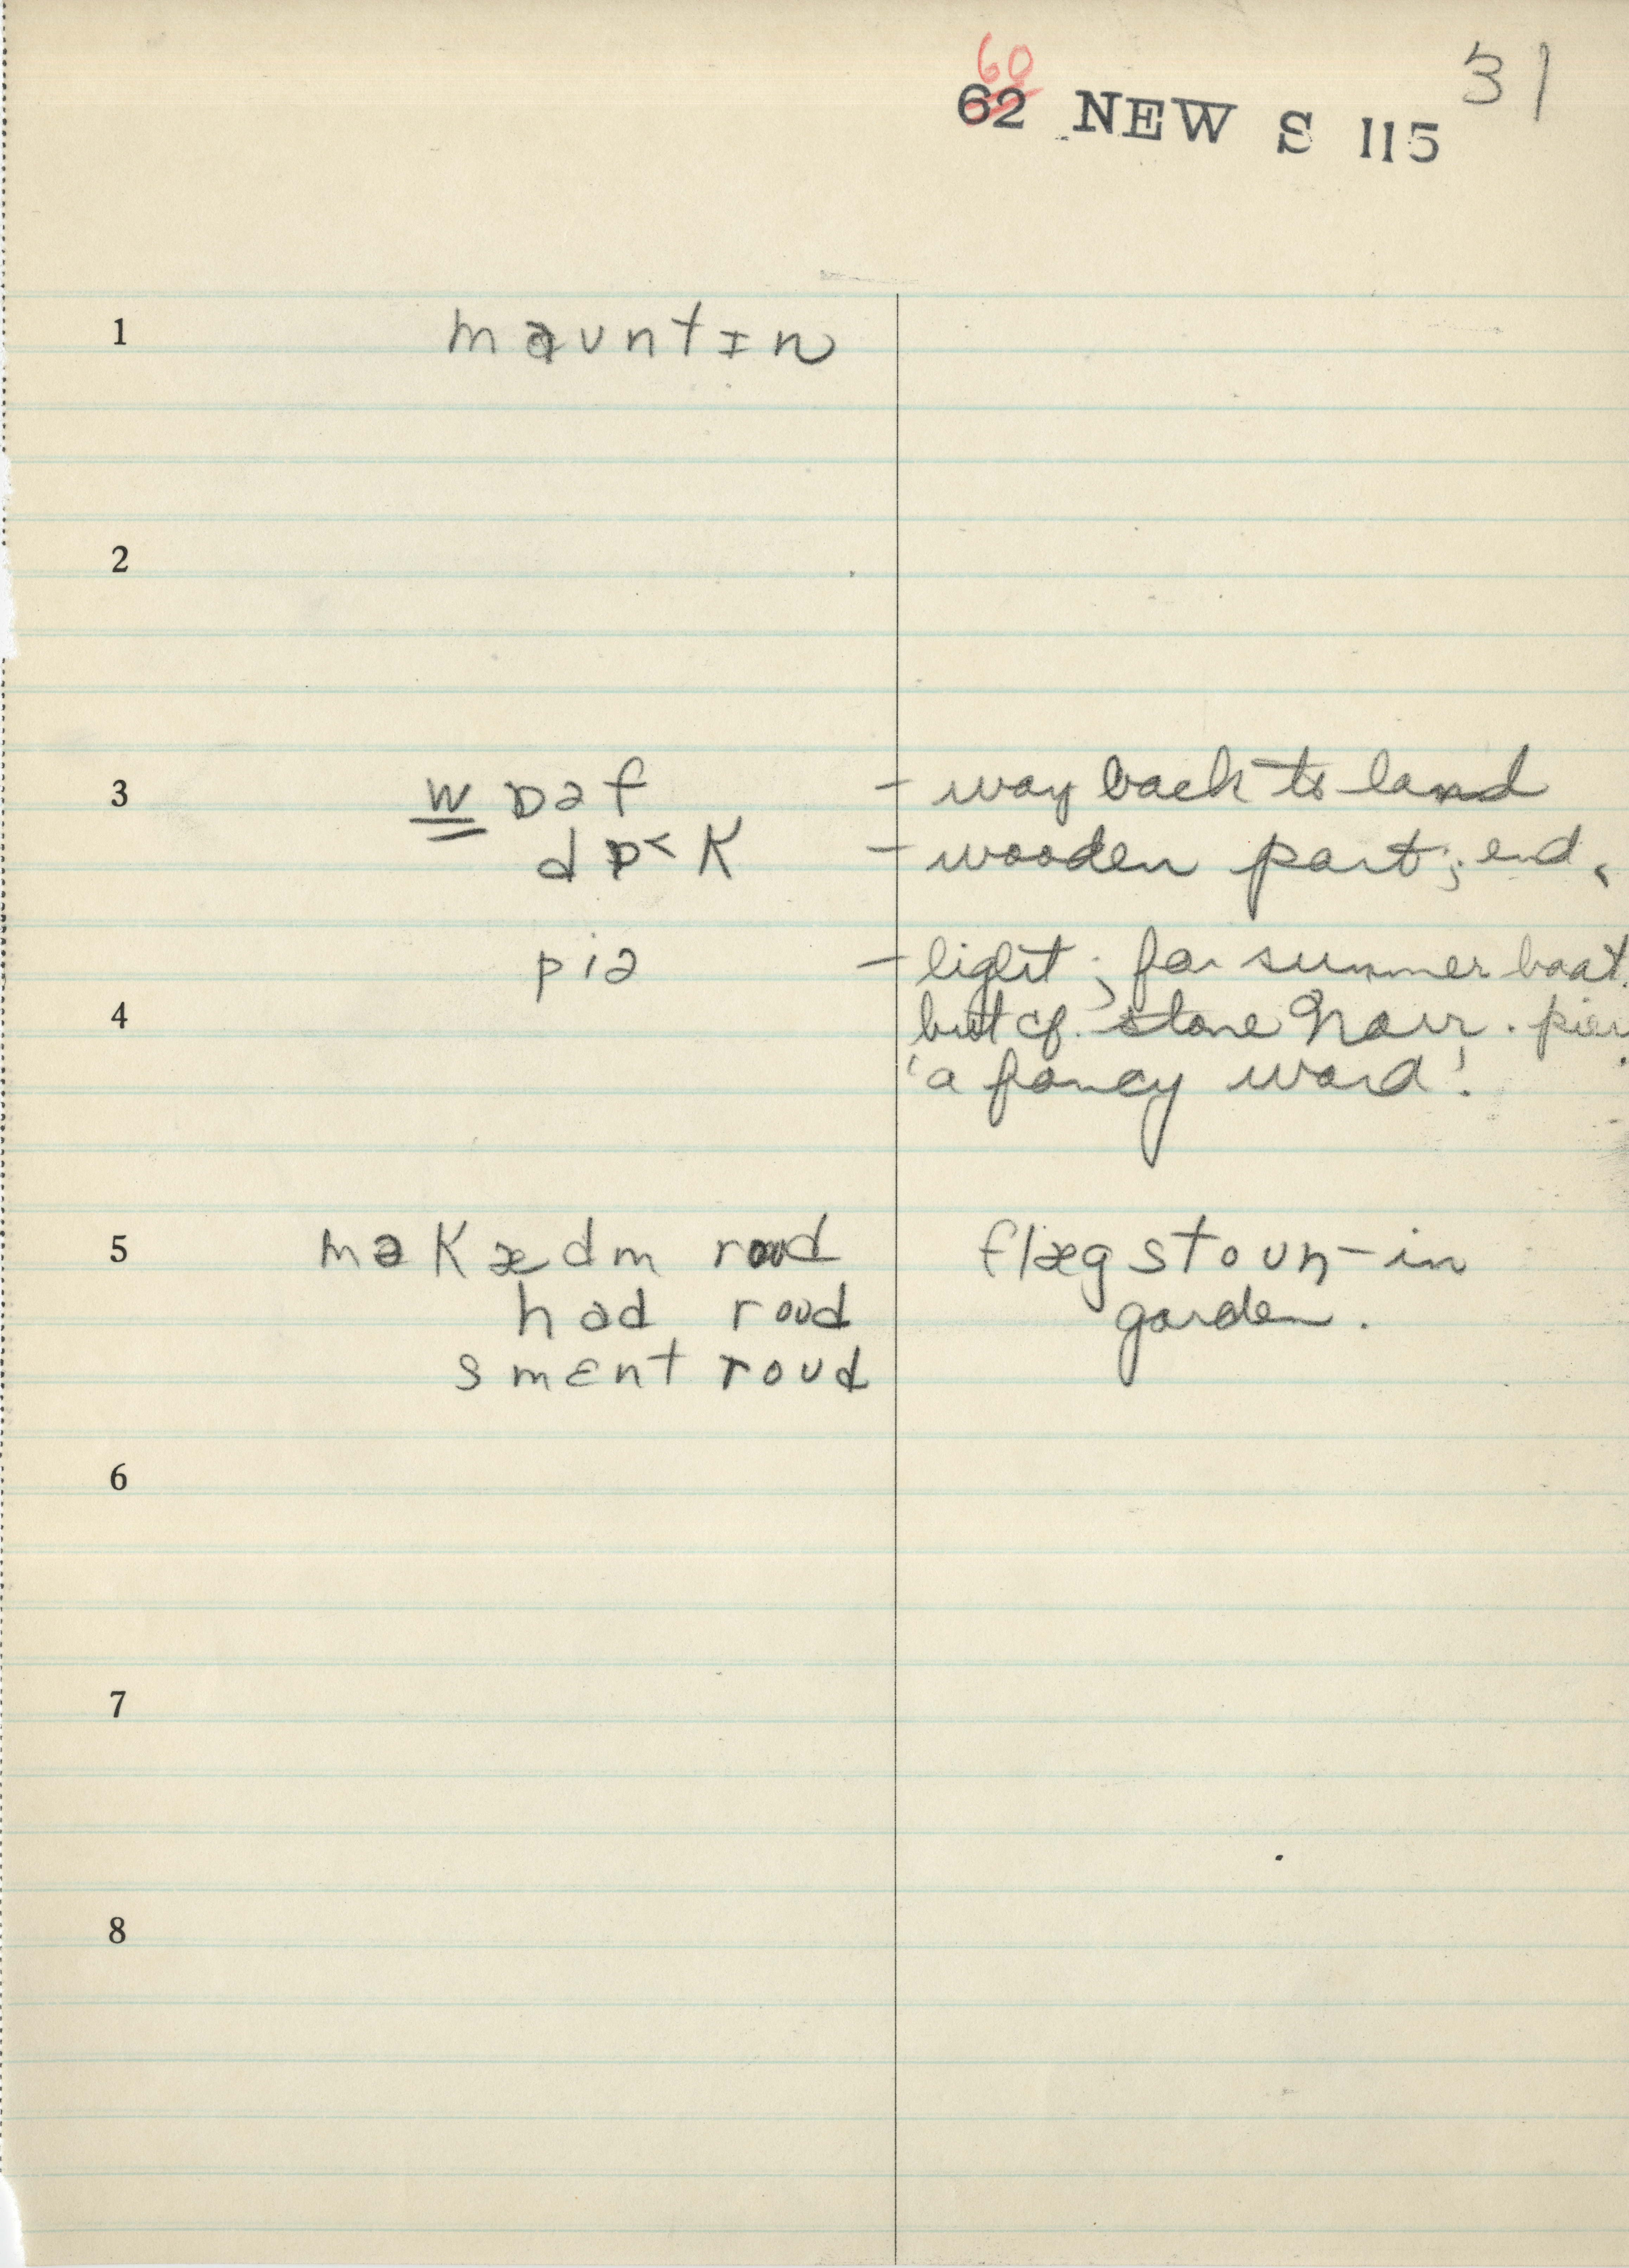 60
62 NEW S 115 31
1 maʊntɪn
2
3 w ɒəf - way back to land
dɒ˂k - wooden part; end.
piə - light; for summer boat.
4 but cf. stone Narr. pier
'a fancy word'.
5 məkædm roʊd flægstoʊn - in
had roʊd garden.
smɛnt roʊd
6
7
8